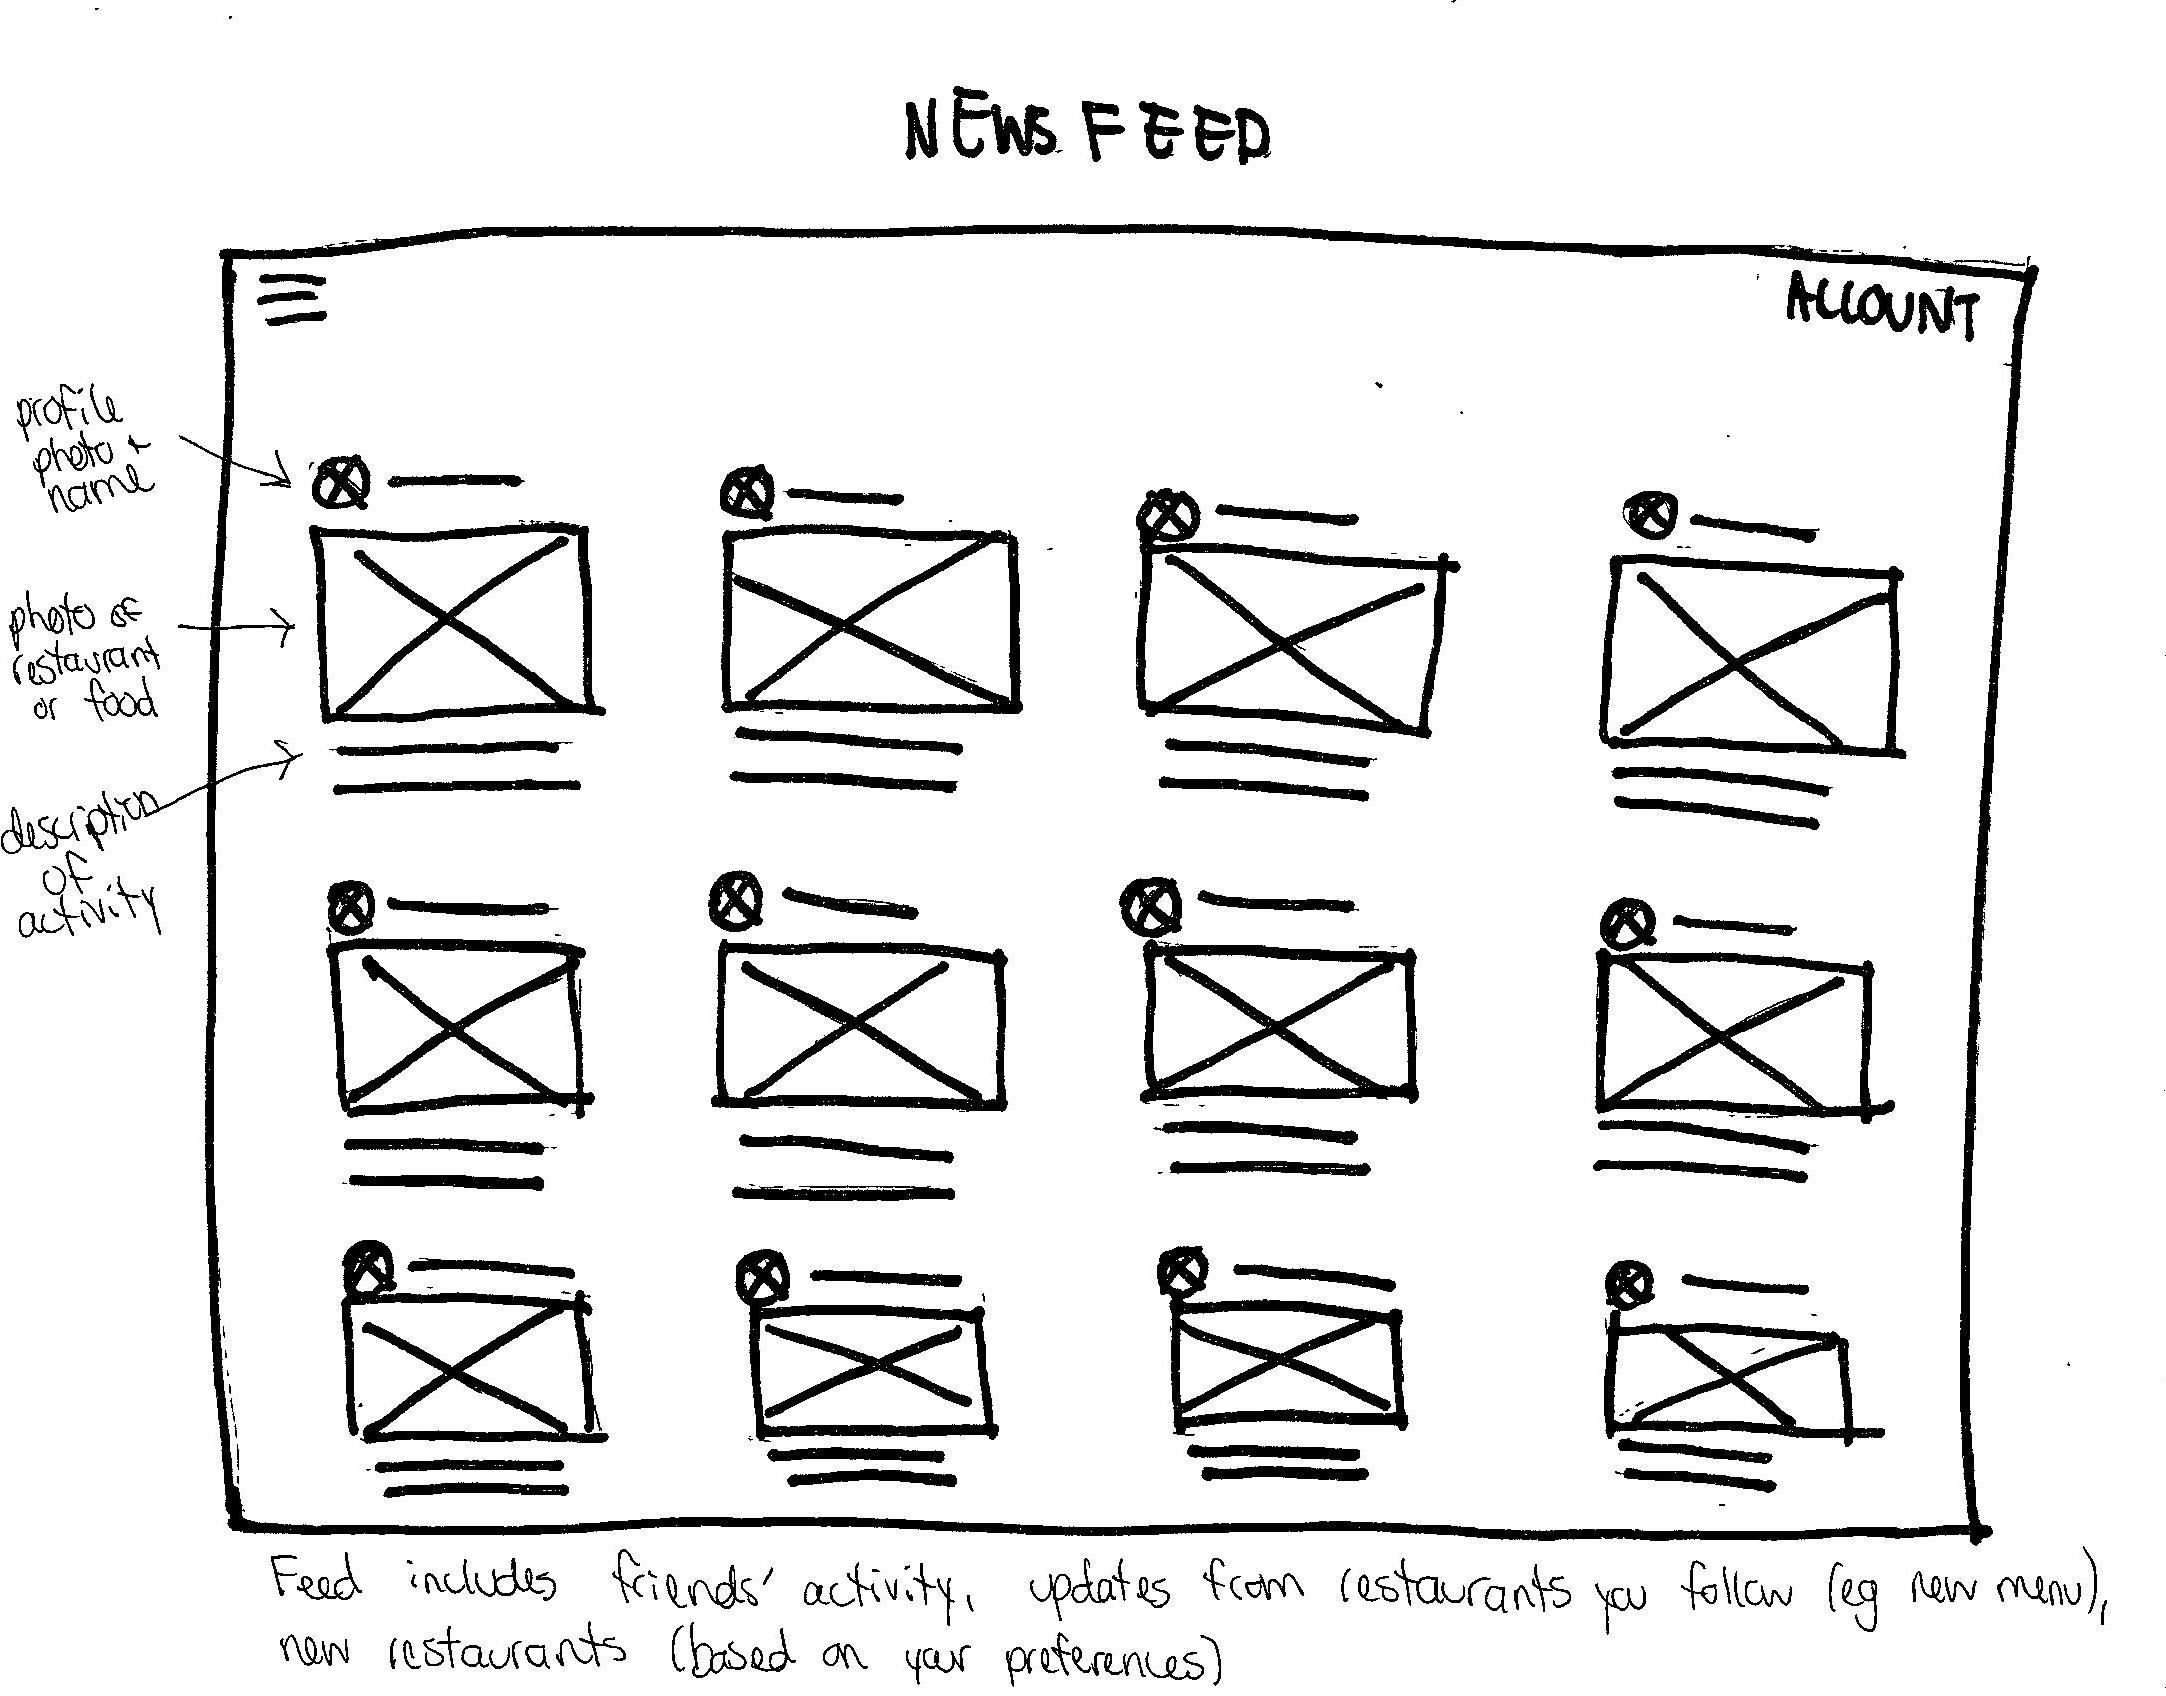 NEWS FEED
ACCOUNT
profile
photo +
name
photo of
restaurant
or food
description
of
activity
Feed includes friends' activity, updates from restaurants you follow (eg new menu),
new restaurants (based on your preferences)